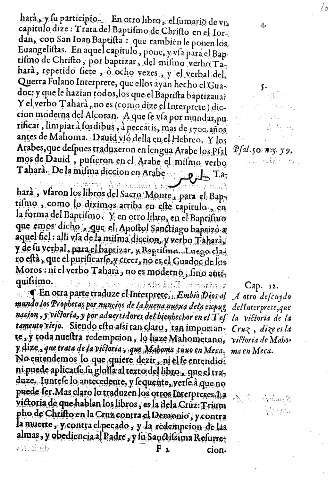 hará, y su participio. En otro libro, el sumario de un
capitulo dize: Trata del Baptismo de Christo en el Ior-
dan, con San Ioan Baptista: que tambien le ponen los
Euangelistas. En aquel capitulo, pone, y vsa para el Bap-
tismo de Christo, por baptizar, del mismo verbo Ta-
hará, repetido siete, ò ocho vezes, y el verbal del,
Guerra Fulano Interprete, que ellos ayan hecho el Gua-
doc: y que le hazian todos, los que el Baptista baptizaua?
Y el verbo Tahará, no es (como dize el Interprete) dic-
cion moderna del Alcoran. A que se vsa por mundar, pu-
rificar, limpiar à sordibus, à peccatis, mas de 1700. años
antes de Mahoma. Dauid vsó della en el Hebreo. Y los
Arabes, que despues traduxeron en lengua Arabe los Psal
mos de Dauid, pusieron en el Arabe el mismo verbo
Tahará. De la misma diccion en Arabe Ta-
hará, vsaron los libros del Sacro Monte, para el Bap-
tismo, como lo diximos arriba en este capitulo, en
la forma del Baptismo. Y en otro libro, en el Baptismo
que emos dicho, que el Apostol Sanctiago baptizó a
aquel fiel: alli vsa de la misma diccion, y verbo Tahará,
y de su verbal, para el baptizar, y Baptismo. Luego cla-
ro está, que el purificarse, y crecer, no es el Guadoc de los
Moros: ni el verbo Tahará, no es moderno, sino anti-
quissimo.
¶ En otra parte traduze el Interprete, Embió Dios al
mundo los Prophetas por nuncios de la buena nueua de la expug
nacion, y victoria, y por aduertidores del bienhechor en el Tes-
tamento viejo. Siendo esto assi tan claro, tan importan-
te, y toda nuestra redempcion, lo haze Mahometano,
y dize, que trata de la victoria, que Mahoma tuuo en Meca.
No entendemos lo que quiere dezir, ni el se entendio:
ni puede aplicarse su glossa al texto del libro, que el tra-
duze. Iuntese lo antecedente, y sequente, verse á que no
puede ser. Mas claro lo traduzen los otros Interpretes. La
victoria de que hablan los libros, es la de la Cruz: Trium
pho de Christo en la Cruz contra el Demonio, y contra
la muerte, y contra el pecado, y la redempcion de las
almas, y obediencia al Padre, y su Sanctissima Resurre-
F 2 cion.
5.
Psal. 50. nu. 3. y 9.
Cap. 12.
A otro descuydo
del Interprete, que
la victoria de la
Cruz, dize es la
victoria de Maho-
ma en Meca.